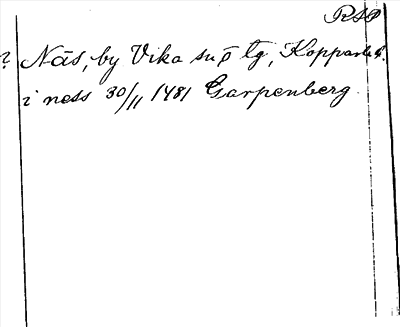 RSP
? Näs, by Vika sn o tg, Kopparb l.
i ness 30/11 1481 Garpenberg